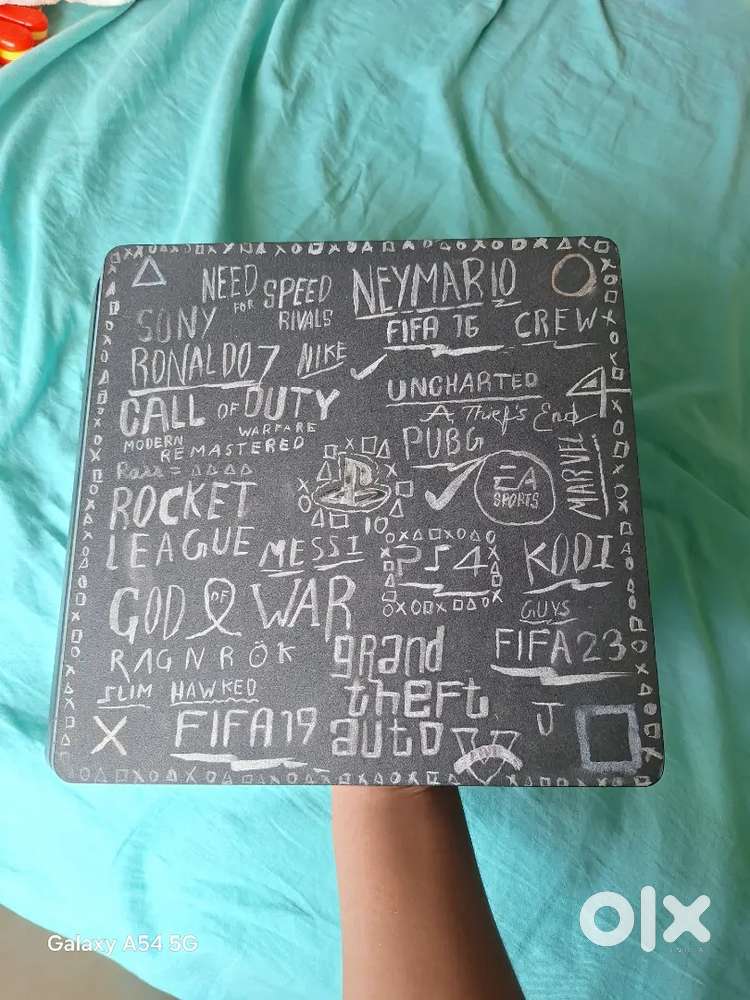 NEED FOR SPEED RIVALS
NEYMAR 10
SONY
FIFA 16
CREW
RONALDO 7
NIKE
UNCHARTED 4
A Thief's End
CALL OF DUTY
MODERN WARFARE
REMASTERED
PUBG
MARVEL
EA
SPORTS
ROCKET
LEAGUE
MESSI 10
PS4
KODI
GOD OF WAR
RAGNRÖK
GUYS
FIFA 23
SLIM HAWKED
FIFA 19
grand
theft
auto V
J
Galaxy A54 5G
olx
INDIA